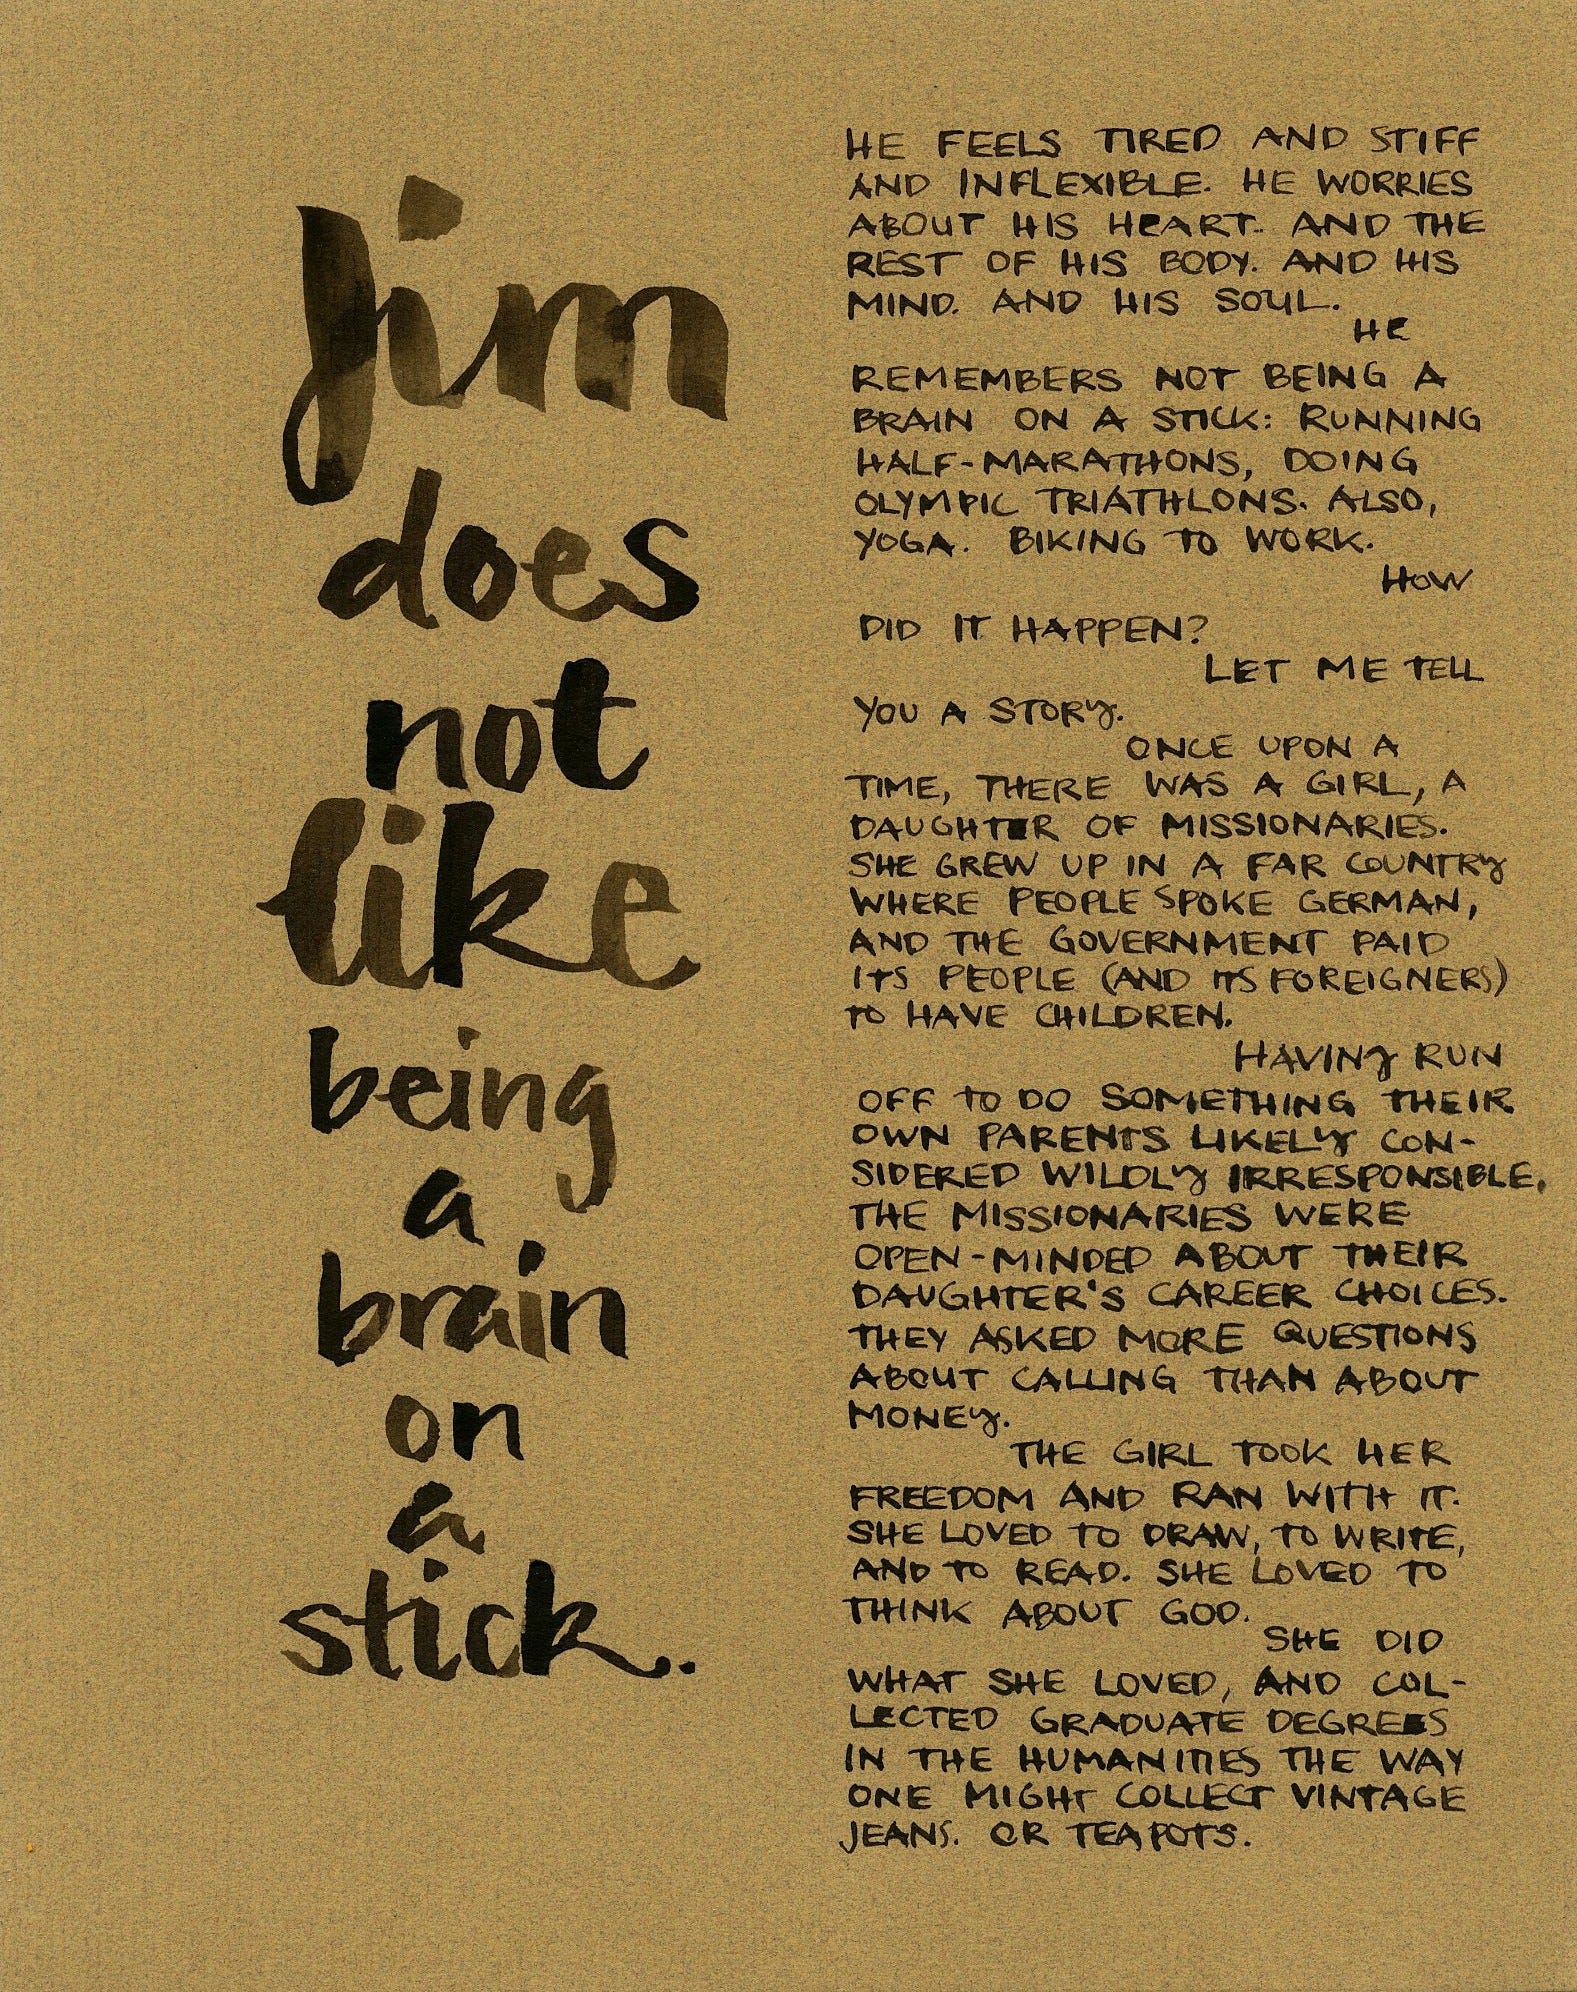 jim
does
not
like
being
a
brain
on
a
stick.
HE FEELS TIRED AND STIFF
AND INFLEXIBLE. HE WORRIES
ABOUT HIS HEART. AND THE
REST OF HIS BODY. AND HIS
MIND. AND HIS SOUL.
HE
REMEMBERS NOT BEING A
BRAIN ON A STICK: RUNNING
HALF-MARATHONS, DOING
OLYMPIC TRIATHLONS. ALSO,
YOGA. BIKING TO WORK.
HOW
DID IT HAPPEN?
LET ME TELL
YOU A STORY.
ONCE UPON A
TIME, THERE WAS A GIRL, A
DAUGHTER OF MISSIONARIES.
SHE GREW UP IN A FAR COUNTRY
WHERE PEOPLE SPOKE GERMAN,
AND THE GOVERNMENT PAID
ITS PEOPLE (AND ITS FOREIGNERS)
TO HAVE CHILDREN.
HAVING RUN
OFF TO DO SOMETHING THEIR
OWN PARENTS LIKELY CON-
SIDERED WILDLY IRRESPONSIBLE,
THE MISSIONARIES WERE
OPEN-MINDED ABOUT THEIR
DAUGHTER'S CAREER CHOICES.
THEY ASKED MORE QUESTIONS
ABOUT CALLING THAN ABOUT
MONEY.
THE GIRL TOOK HER
FREEDOM AND RAN WITH IT.
SHE LOVED TO DRAW, TO WRITE,
AND TO READ. SHE LOVED TO
THINK ABOUT GOD.
SHE DID
WHAT SHE LOVED, AND COL-
LECTED GRADUATE DEGREES
IN THE HUMANITIES THE WAY
ONE MIGHT COLLECT VINTAGE
JEANS. OR TEAPOTS.